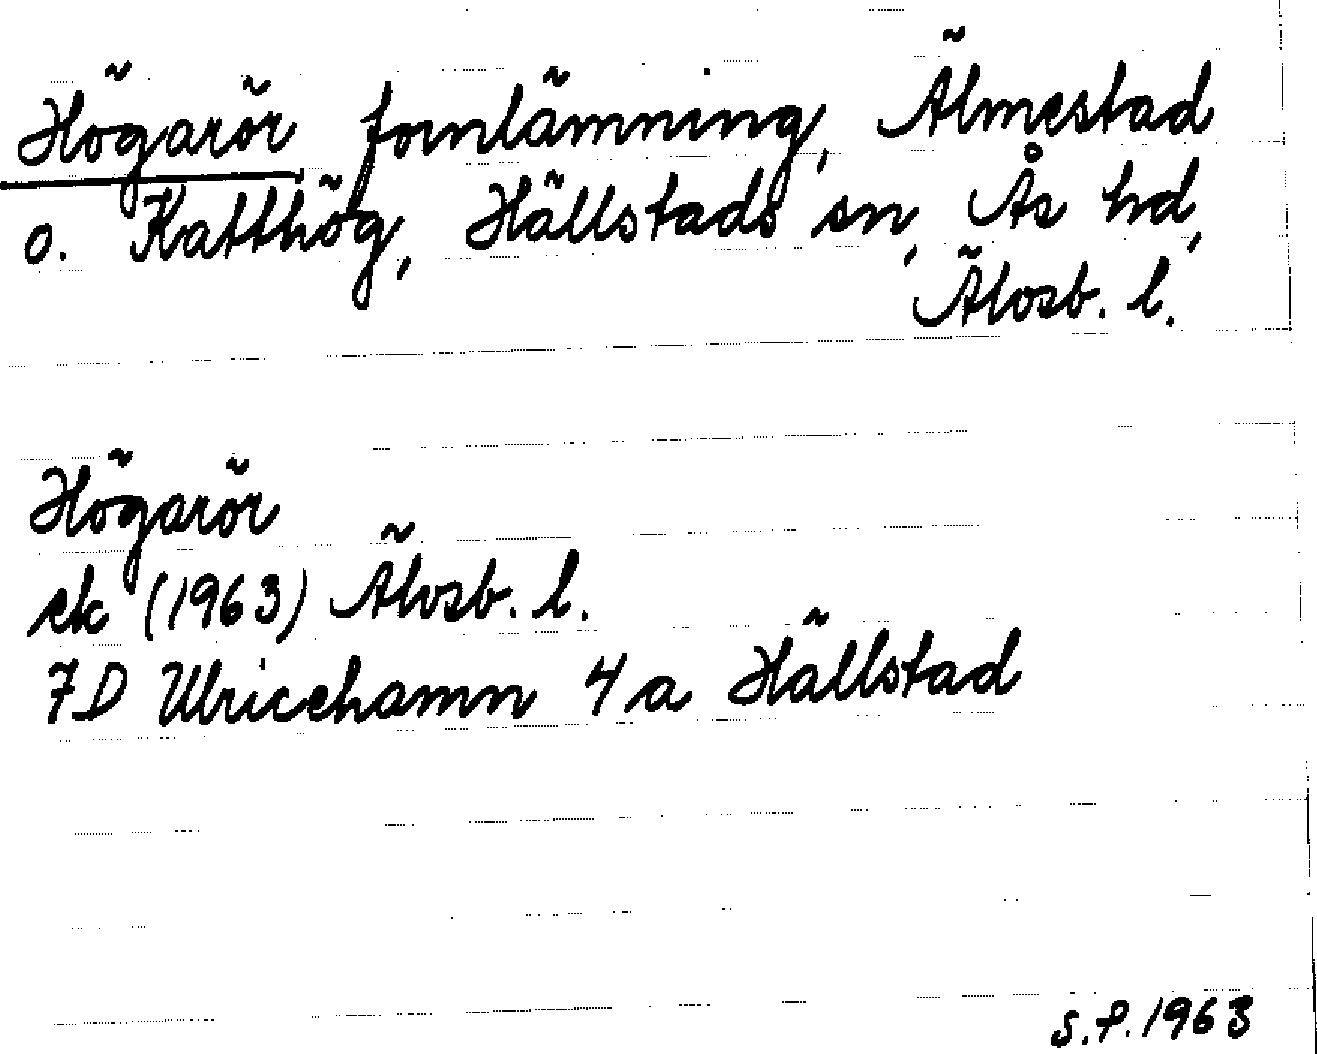 Högarör fornlämning, Älmestad
o. Katthög, Hällstads sn, Ås hd,
Älvsb. l.
Högarör
ek (1963) Älvsb. l.
7D Ulricehamn 4a Hällstad
S.P. 1963